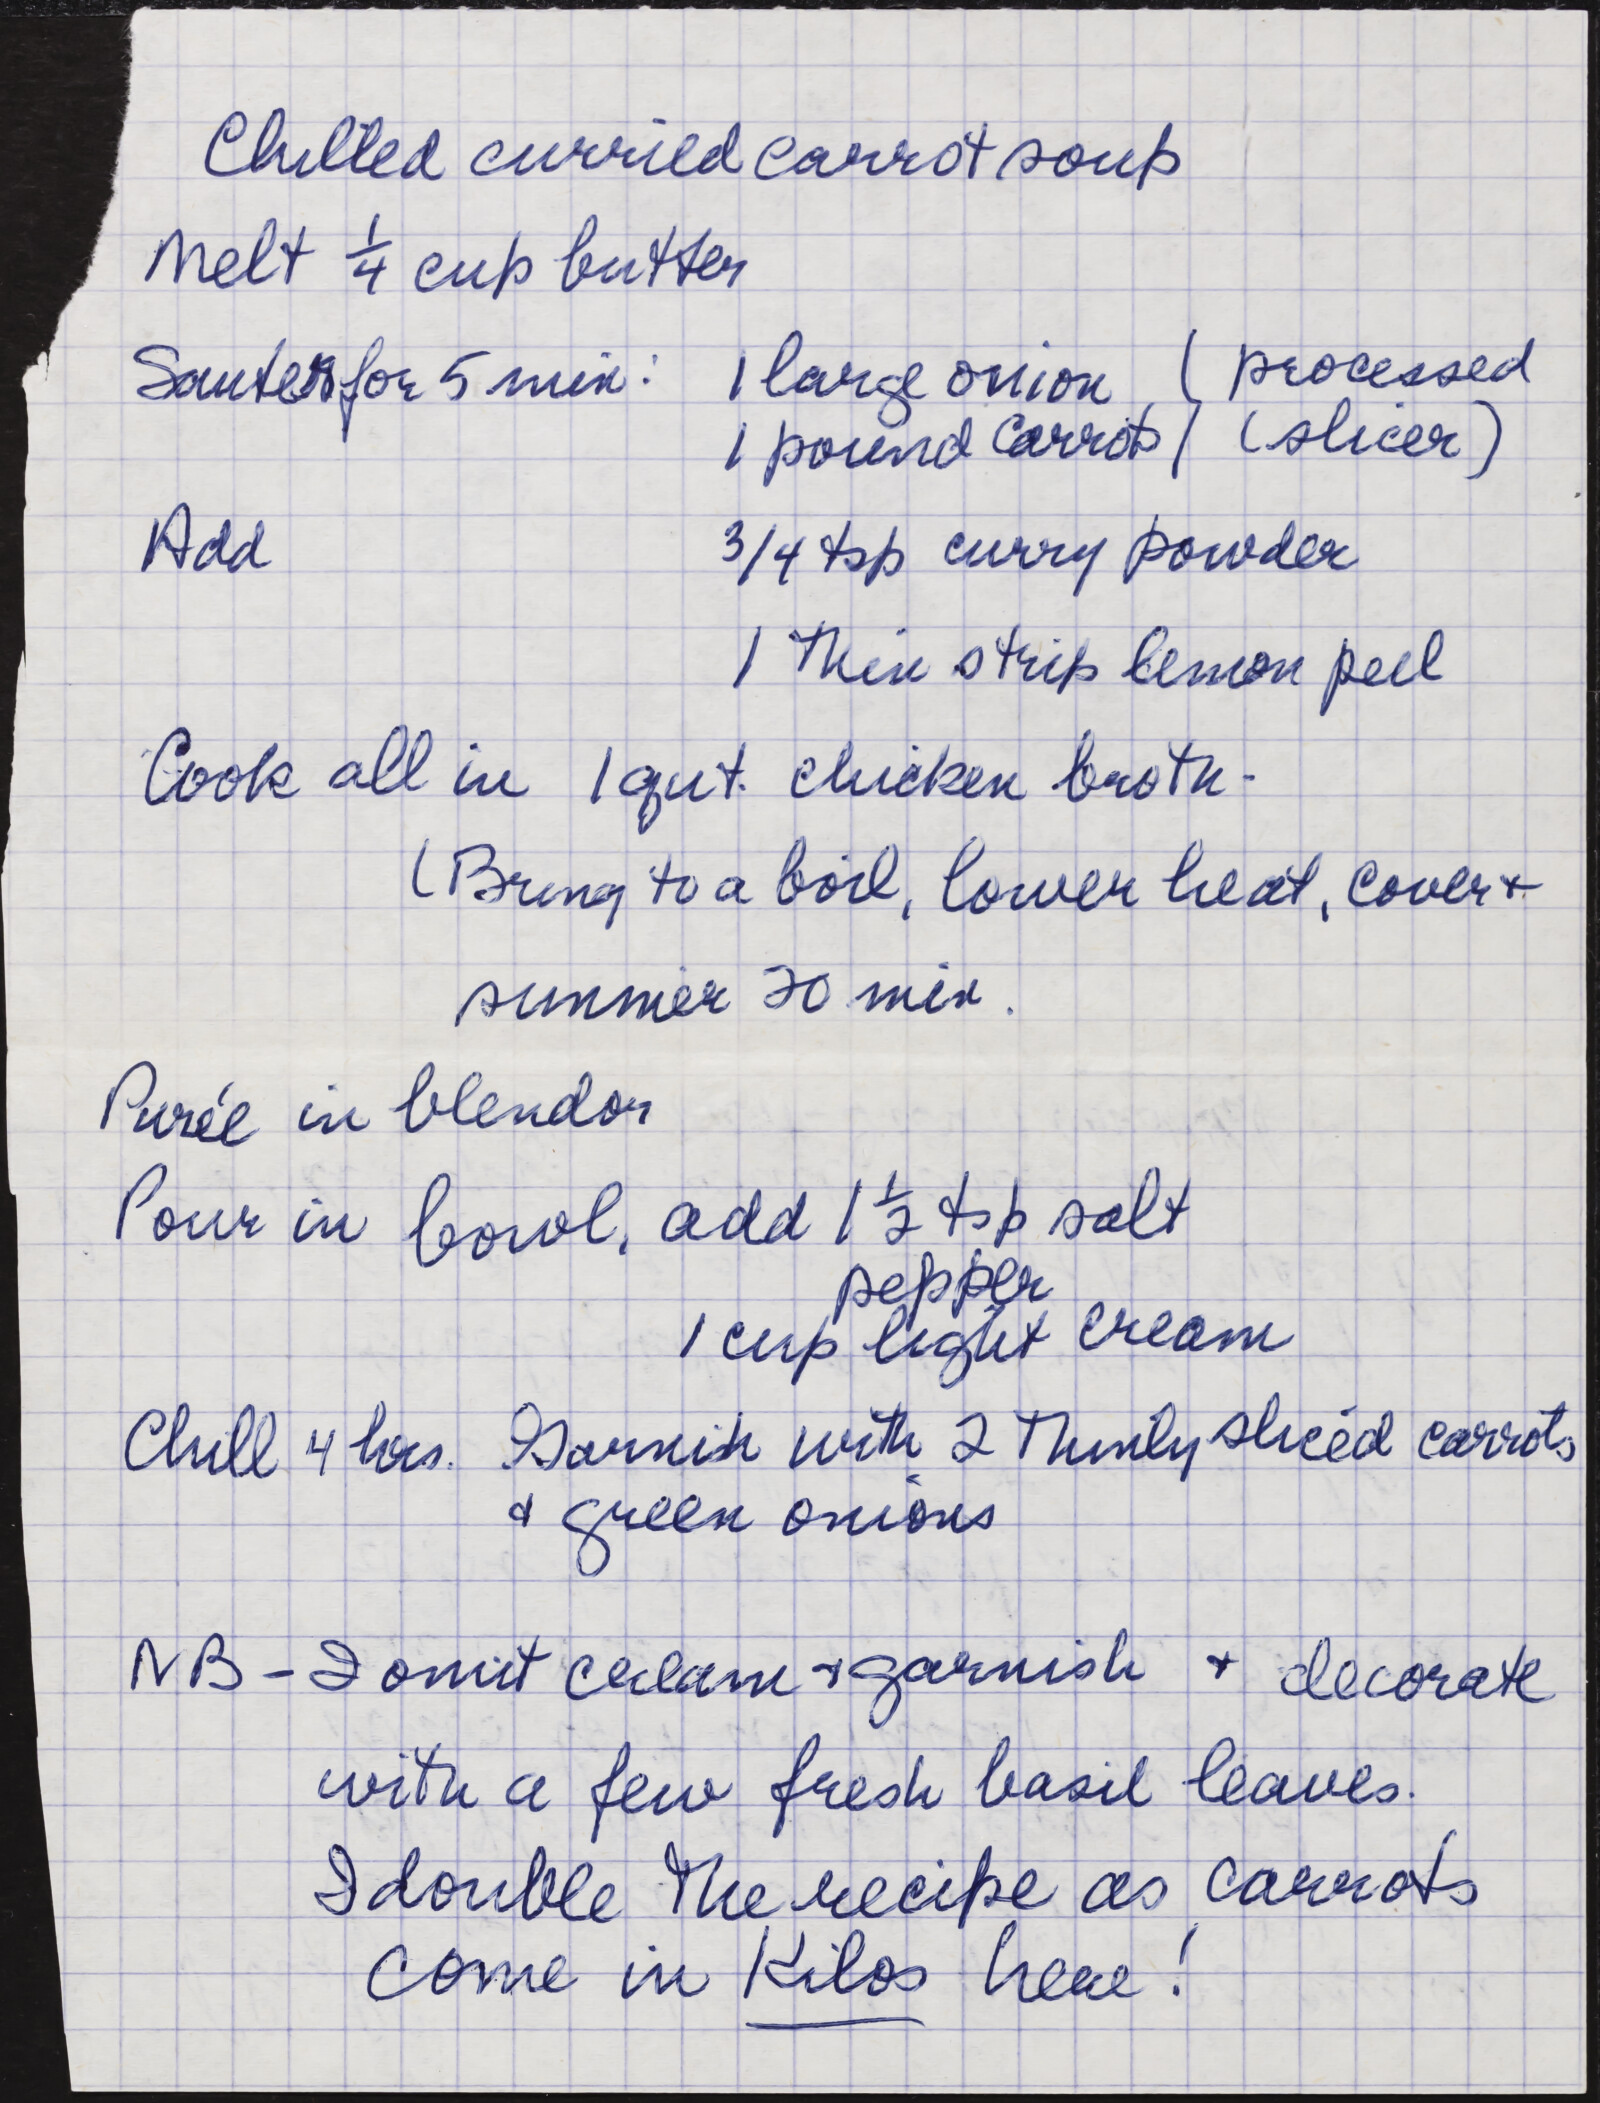 Chilled curried carrot soup
Melt 1/4 cup butter
Sauter for 5 min: 1 large onion ( processed
1 pound carrots / (slicer)
Add 3/4 tsp curry powder
1 thin strip lemon peel
Cook all in 1 qut. chicken broth -
(Bring to a boil, lower heat, cover +
simmer 20 min.
Purée in blendor
Pour in bowl, add 1 1/2 tsp salt
pepper
1 cup light cream
Chill 4 hrs. Garnish with 2 thinly sliced carrots
& green onions
NB - I omit cream + garnish + decorate
with a few fresh basil leaves.
I double the recipe as carrots
come in Kilos here!